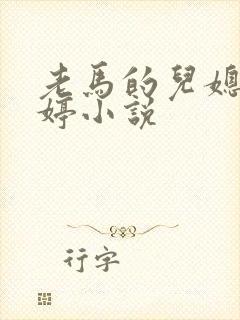 老馬的兒媳
婷小說
行字